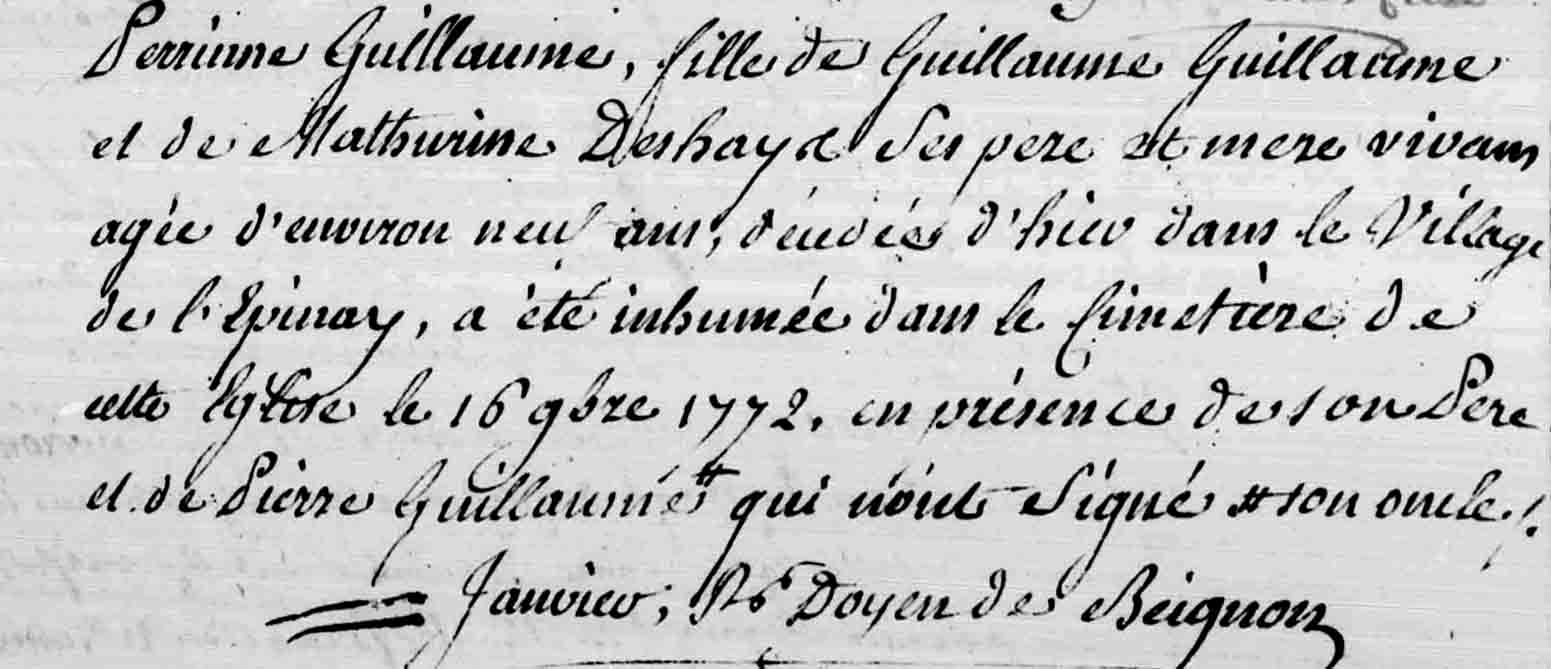 Perrinne Guillaume, fille de Guillaume Guillaume
et de Mathurine Deshayx Ses pere et mere vivans
agée d'environ neuf ans, décédée d'hier dans le Village
de l'Epinay, a été inhumée dans le Cimetière de
cette Eglise le 16 9bre 1772, en présence de son Pere
et de Pierre Guillaume # qui n'ont Signé # son oncle ./.
Janvier; Doyen de Beignon